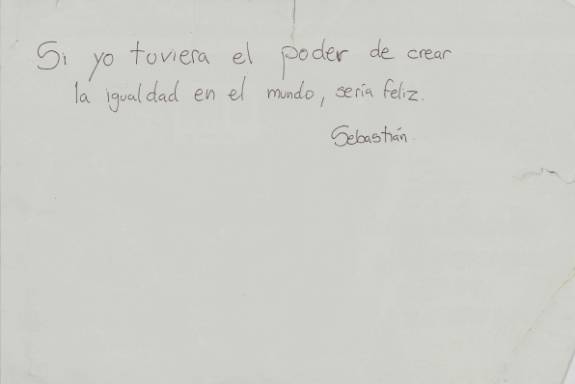 Si yo tuviera el poder de crear
la igualdad en el mundo, sería feliz.
Sebastián